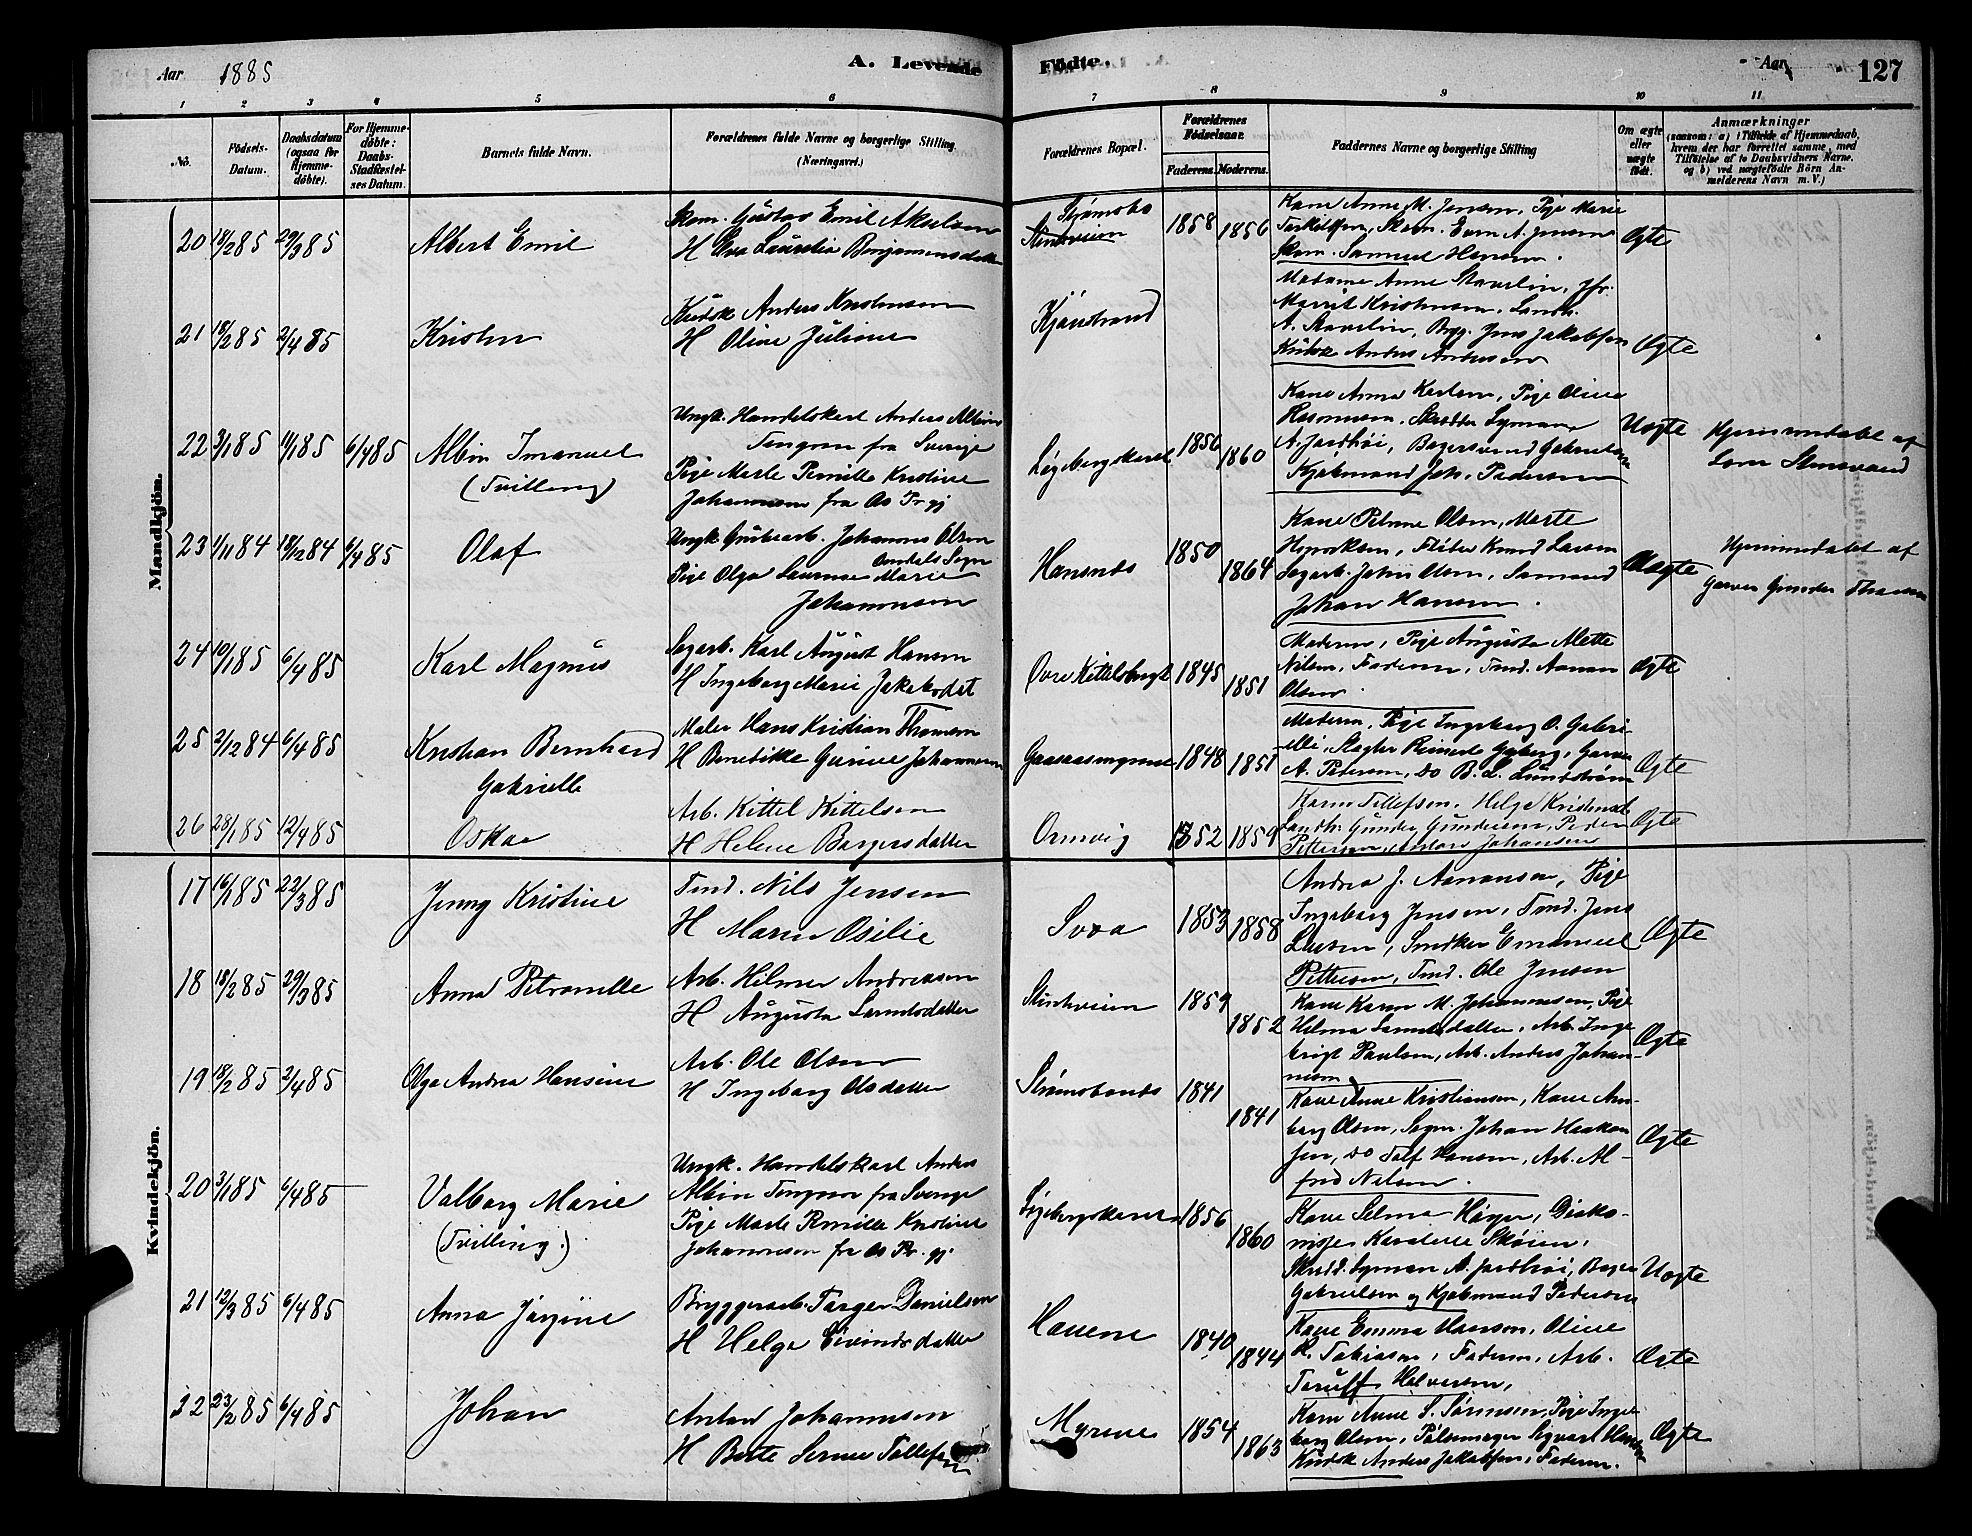 Aar 1885
A. Levende
Födte.
Aar
127
1 2 3 4 5 6 7 8 9 10 11
No.
Födsels-Datum.
Daabsdatum (ogsaa for Hjemme-döbte).
For Hjemme-döbte: Daabs-Stadfæstel-ses Datum.
Barnets fulde Navn.
Forældrenes fulde Navne og borgerlige Stilling. (Næringsvei.)
Forældrenes Bopæl.
Forældrenes Födselsaar. Faderens. Moderens.
Faddernes Navne og borgerlige Stilling
Om ægte eller uægte födt.
Anmærkninger
(saasom: a) i Tilfælde af Hjemmedaab, hvem der har forrettet samme, med Tilföielse af to Daabsvidners Navne, og b) ved uægtefödte Börn An-melderens Navn m. V.)
Mandkjön.
20 18/2 85 29/3 85 Albert Emil
Skom. Gustav Emil Akselsen
H Eva Lauretia Benjamensdatter
Strömsbo
1858 1856
Kone Anne M. Jensen, Pige Marie
Terkelsen, Skom. Even A. Jensen
Skom. Samuel Hansen.
Ægte
21 18/2 85 2/4 85 Kristen
Kudsk Anders Kristensen
H Oline Juliane
Kjönstrand
Madame Anne Stavelin, Jfr.
Marrit Kristensen, Landh.
A. Stavelin, Brgg. Jens Jakobsen
Kudsk Anders Andersen
Ægte
22 3/1 85 11/1 85 6/4 85 Albin Imanuel
(Tvilling)
Ungk. Handelskarl Anders Albin
Tengren fra Sverige
Pige Marte Pernille Kristine
Johannesen fra Os Prgj
Lögebergskaret
1856 1860
Kone Anna Karlsen, Pige Oline
Rasmussen, Skrædder Syman
A. Jardhöi, Bagersvend Gabrielsen
Kjöbmand Joh. Pedersen
Uægte
Hjemmedöbt af
Lars Stensvand
23 1/11 84 18/12 84 6/4 85 Olaf
Ungk. Grubearb. Johannes Olsen
Omdals Sogn
Pige Olga Laurense Marie
Johannesen
Hansnes
1850 1864
Kone Petrine Olsen, Marte
Knud Larsen
Sagarb. John Olsen, Sömand
Johan Hansen.
Uægte
Hjemmedöbt af
Garver Gunder Thorsen
24 10/1 85 6/4 85 Karl Magnus
Sagarb. Karl August Hansen
H Ingeborg Marie Jakobsdat
Övre Kittelsbugt
1845 1851
Moderen, Pige Augusta Alette
Nilsen, Faderen, Tmd. Aanon
Olsen.
Ægte
25 2/12 84 6/4 85 Kristian Bernhard
Gabrielle
Maler Hans Kristian Thomsen
H Benedikte Gurine Johannesen
Gaasaasmyrene
1848 1851
Moderen, Pige Ingeborg O. Gabri-
elli, Slagter Reinert Gjeberg, Garver
A. Pedersen, do B. L. Lundström
Ægte
26 28/1 85 12/4 85 Oskar
Arb. Kittel Kittelsen
H Helene Børgersdatter
Ormvig
1852 1859
Karen Tellefsen, Helge Kristensd.
Landh. Gunder Gundersen, Peder
Pettersen, Johansen
Ægte
Kvindekjön.
17 16/1 85 22/3 85 Jenny Kristine
Tmd. Nils Jensen
H Maren Osilie
Svoa
1853 1858
Andrea J. Aanonsen, Pige
Ingeborg Jensen, Tmd. Jens
Larsen, Snedker Emanuel
Pettersen, Tmd. Ole Jensen
Ægte
18 18/2 85 29/3 85 Anna Petronelle
Arb. Hilmer Andreasen
H Augusta Larentsdatter
Stinteveien
1859 1852
Kone Karen M. Johannesen, Pige
Helma Samuelsdatter, Arb. Inge
brigt Paulsen, Arb. Anders Johan-
nesen
Ægte
19 18/2 85 2/4 85 Olga Andrea Hansine
Arb. Ole Olsen
H Ingeborg Olsdatter
Strömsbonæs
1841 1841
Kone Anne Kristiansen, Kone Ann-
borg Olsen, Sagm. Johan Haakon
sen, do Tellf Hansen, Arb. Al-
fred Nilsen.
Ægte
20 3/1 85 6/4 85 Valborg Marie
(Tvilling.)
Ungk. Handelskarl Anders
Albin Tengren fra Sverige
Pige Marte Pernille Kristine
Johannesen fra Os Pr. gj.
Lögebergskaret
1856 1860
Kone Selma Höyer, Diako-
nisse Karoline Sköien,
Skrdd. Syman A. Jardhöi, Bager
Gabrielsen og Kjöbmand Pedersen
Uægte
21 12/3 85 6/4 85 Anna Jörgine
Bryggerarb. Targer Danielsen
H Helge Eivindsdatter
Hauene
1840 1844
Kone Emma Hansen, Oline
R. Tobiasen, Faderen, Arb.
Toruff Halvorsen,
Ægte
22 23/2 85 6/4 85 Johan
Anton Johannesen
H Berte Serine Tollefsen
Myrene
1854 1863
Kone Anne S. Sörensen, Pige Inge
borg Olsen, Pölsemager Sigvart Hansen
Kudsk Anders Jakobsen, Faderen.
Ægte